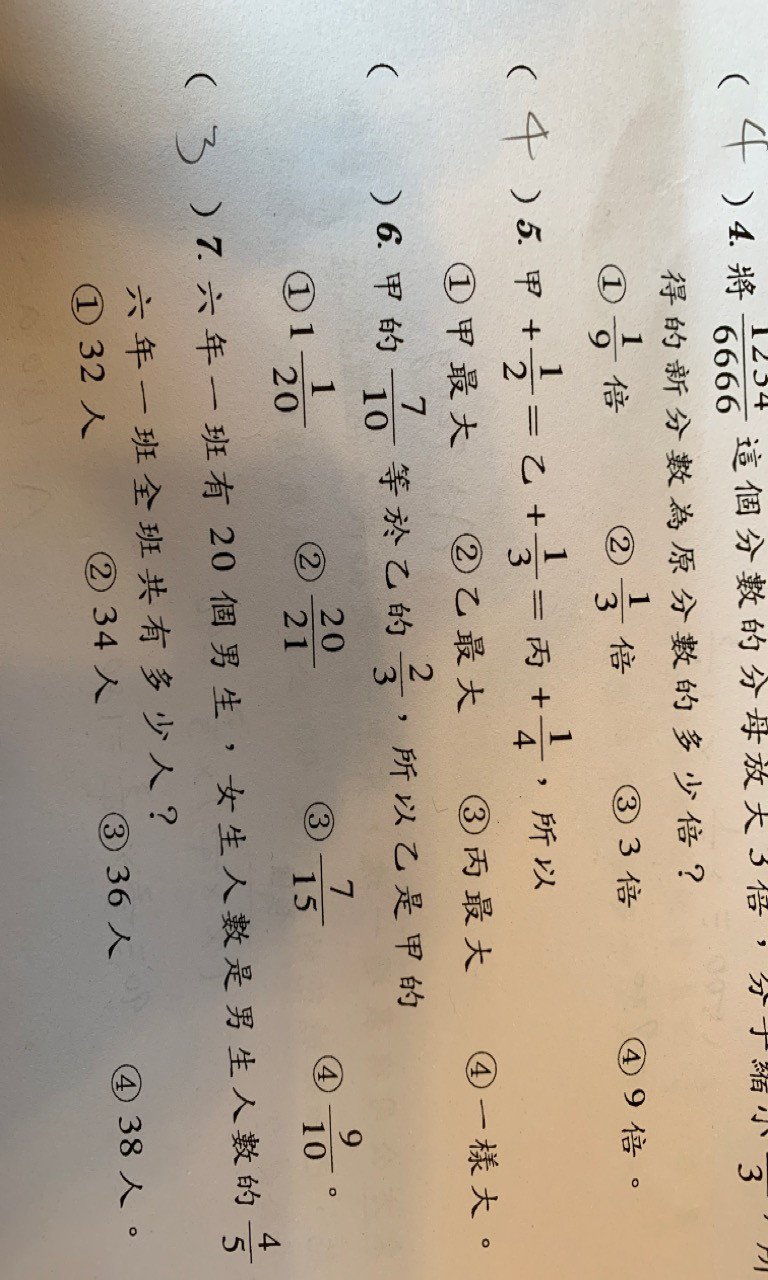 ( 4 ) 4. 將 1234/6666 這個分數的分母放大 3 倍，分子縮小 /3，所
得的新分數為原分數的多少倍？
① 1/9 倍 ② 1/3 倍 ③ 3 倍 ④ 9 倍。
( 4 ) 5. 甲 + 1/2 = 乙 + 1/3 = 丙 + 1/4，所以
① 甲最大 ② 乙最大 ③ 丙最大 ④ 一樣大。
( ) 6. 甲的 7/10 等於乙的 2/3，所以乙是甲的
① 1 1/20 ② 20/21 ③ 7/15 ④ 9/10。
( 3 ) 7. 六年一班有 20 個男生，女生人數是男生人數的 4/5
六年一班全班共有多少人？
① 32 人 ② 34 人 ③ 36 人 ④ 38 人。